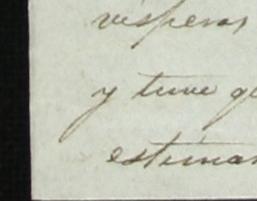 vísperas
y tuve qu
estiman